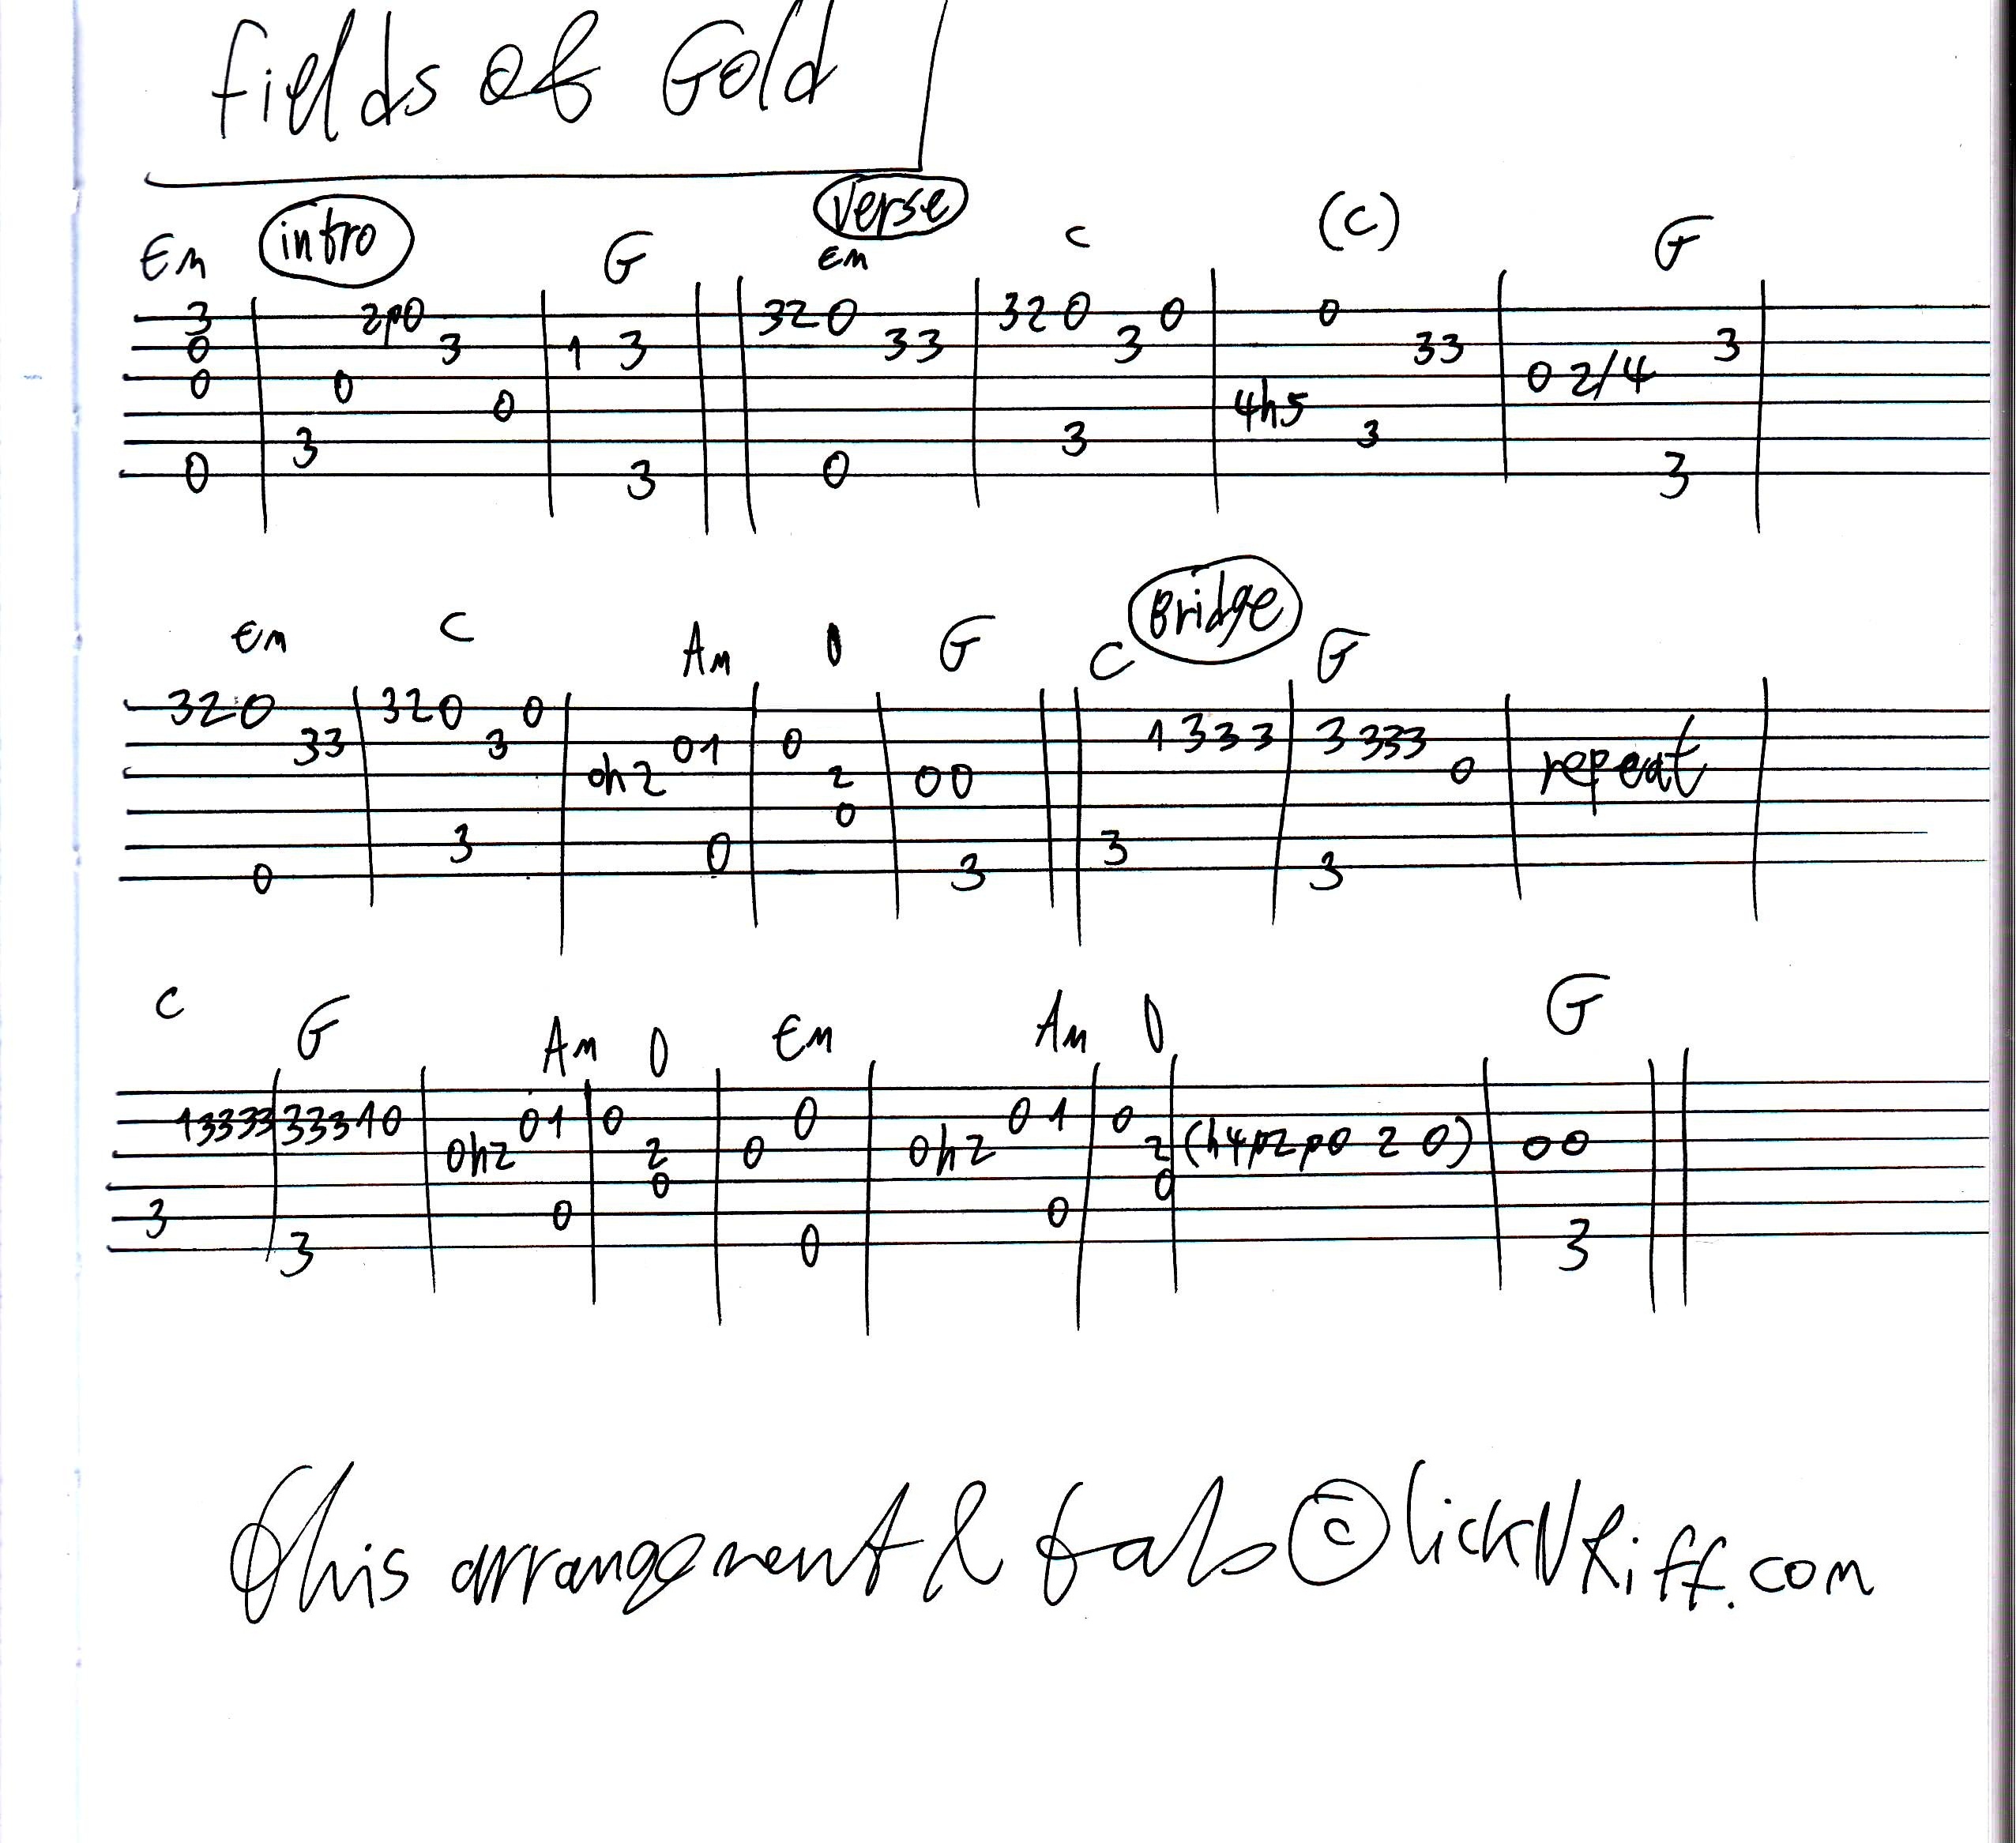 Fields of Gold
intro
verse
Em G Em C (C) G
3 2p0 320 320 0 0
0 3 1 3 33 3 33 3
0 0 0 2/4
0 4h5
3 3 3
0 3 0 3
Bridge
Em C Am D G C G
320 320 0
33 3 01 0 1333 3333
0h2 2 00 0 repeat
0
3 0 3
0 3 3
C G Am D Em Am D G
13333 33310 01 0 0 01 0
0h2 2 0 0h2 2 (h4p2p0 2 0) 00
0 0
3 0 0
3 0 3
This arrangement & tabs © lickNRiff.com